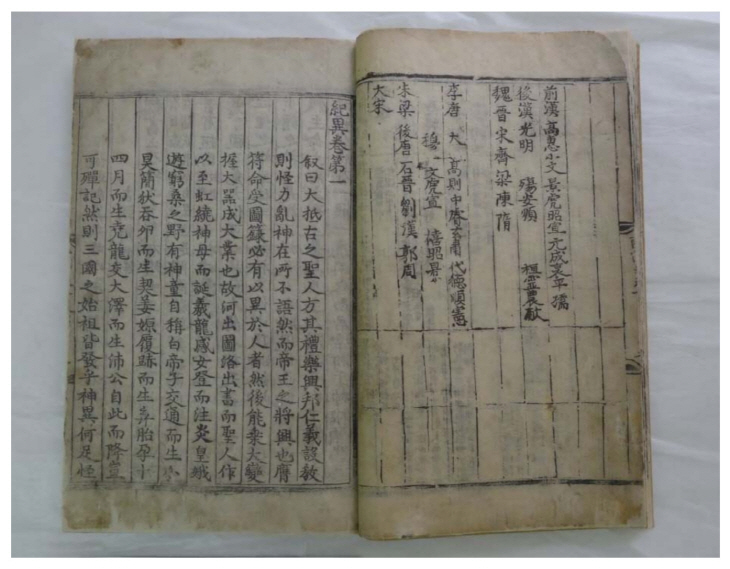 前漢 高惠小文景虎昭宣元成哀平孺
後漢 光明 殤安順 桓靈農献
魏晋宋齊梁陳隋
李唐 大 高則中睿玄肅代德順憲
穆 文虎宣 懿昭景
朱梁後唐石晋劉漢郭周
大宋
紀異卷第一
叙曰大抵古之聖人方其禮樂興邦仁義設教
則怪力亂神在所不語然而帝王之將興也膺
符命受圖籙必有以異於人者然後能乗大變
握大器成大業也故河出圖洛出書而聖人作
以至虹繞神母而誕羲龍感女登而注炎皇娥
遊窮桑之野有神童自稱白帝子交通而生小
昊簡狄吞卵而生契姜嫄履跡而生弃胎孕十
四月而生堯龍交大澤而生沛公自此而降豈
可殫記然則三國之始祖皆發乎神異何足怪